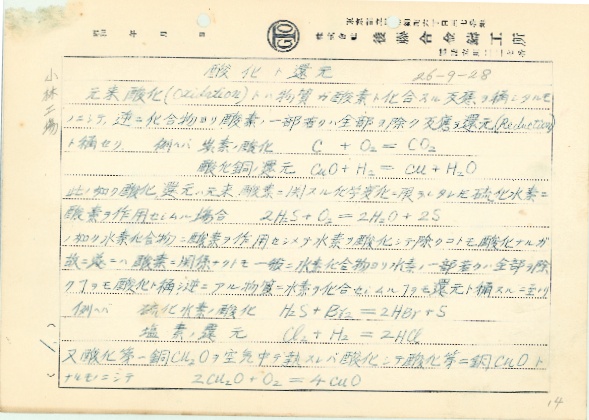 昭和 年 月 日
株式会社 後藤合金鋳工所
酸化ト還元 26-9-28
元来酸化(Oxidation)トハ物質ガ酸素ト化合スル反應ヲ稱シタルモ
ノニシテ、逆ニ化合物ヨリ酸素ノ一部若クハ全部ヲ除ク反應ヲ還元(Reduction)
ト稱セリ 例ヘバ 炭素ノ酸化 C + O₂ = CO₂
酸化銅ノ還元 CuO + H₂ = Cu + H₂O
此ノ如ク酸化、還元ハ元来、酸素ニ関スル化学変化ニ限ラレタレド硫化水素ニ
酸素ヲ作用セシムル場合 2H₂S + O₂ = 2H₂O + 2S
ノ如ク水素化合物ニ酸素ヲ作用セシメテ水素ヲ酸化シテ除クコトモ酸化ナルガ
故ニ遂ニハ酸素ニ関係ナクトモ一般ニ水素化合物ヨリ水素ノ一部若クハ全部ヲ除
クコトモ酸化ト稱シ逆ニアル物質ニ水素ヲ化合セシムルコトモ還元ト稱スルニ至リ
例ヘバ 硫化水素ノ酸化 H₂S + Br₂ = 2HBr + S
塩素ノ還元 Cl₂ + H₂ = 2HCl
又酸化第一銅Cu₂Oヲ空気中デ熱スレバ酸化シテ酸化第二銅CuOト
ナルモノニシテ 2Cu₂O + O₂ = 4CuO
小林工場
(1.)
14